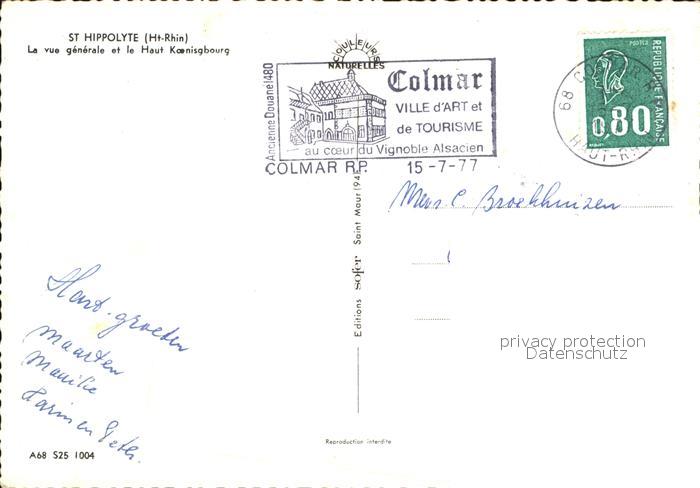 ST HIPPOLYTE (Ht-Rhin)
La vue générale et le Haut Kœnisgbourg
COULEURS
NATURELLES
Ancienne Douane 1480
Colmar
VILLE d'ART et
de TOURISME
au cœur du Vignoble Alsacien
COLMAR R.P. 15-7-77
68
HAUT-RHIN
POSTES
REPUBLIQUE FRANÇAISE
0,80
C. Broekhuizen
Hart. groeten
Maarten
Karin en Peter.
Editions sofer Saint Maur (94)
privacy protection
Datenschutz
Reproduction interdite
A68 S25 1004